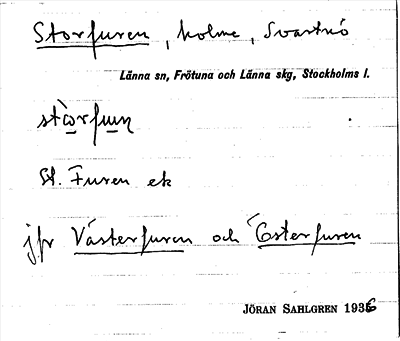 Storfuren, holme, Svartnö
Länna sn, Frötuna och Länna skg, Stockholms l.
stòrfun
St. Furen ek
jfr Västerfuren och Österfuren
JÖRAN SAHLGREN 1936